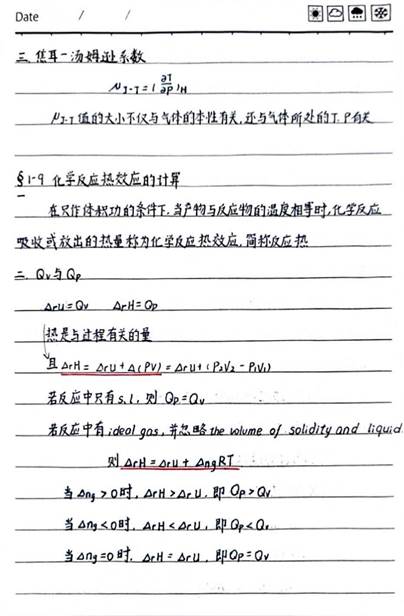 Date / /
三. 焦耳-汤姆逊系数
μJ-T = (∂T/∂P)H
μJ-T 值的大小不仅与气体的本性有关,还与气体所处的T.P有关
§1-9 化学反应热效应的计算
一 在只作体积功的条件下,当产物与反应物的温度相等时,化学反应
吸收或放出的热量称为化学反应热效应,简称反应热
二. Qv与Qp
ΔrU=Qv ΔrH=Qp
热是与过程有关的量
且 ΔrH = ΔrU + Δ(PV) = ΔrU + (P2V2 - P1V1)
若反应中只有s.l,则 Qp=Qv
若反应中有ideal gas,并忽略the volume of solidity and liquid
则 ΔrH = ΔrU + ΔngRT
当 Δng > 0时, ΔrH > ΔrU, 即 Qp > Qv
当 Δng < 0时, ΔrH < ΔrU, 即 Qp < Qv
当 Δng = 0时, ΔrH = ΔrU, 即 Qp = Qv